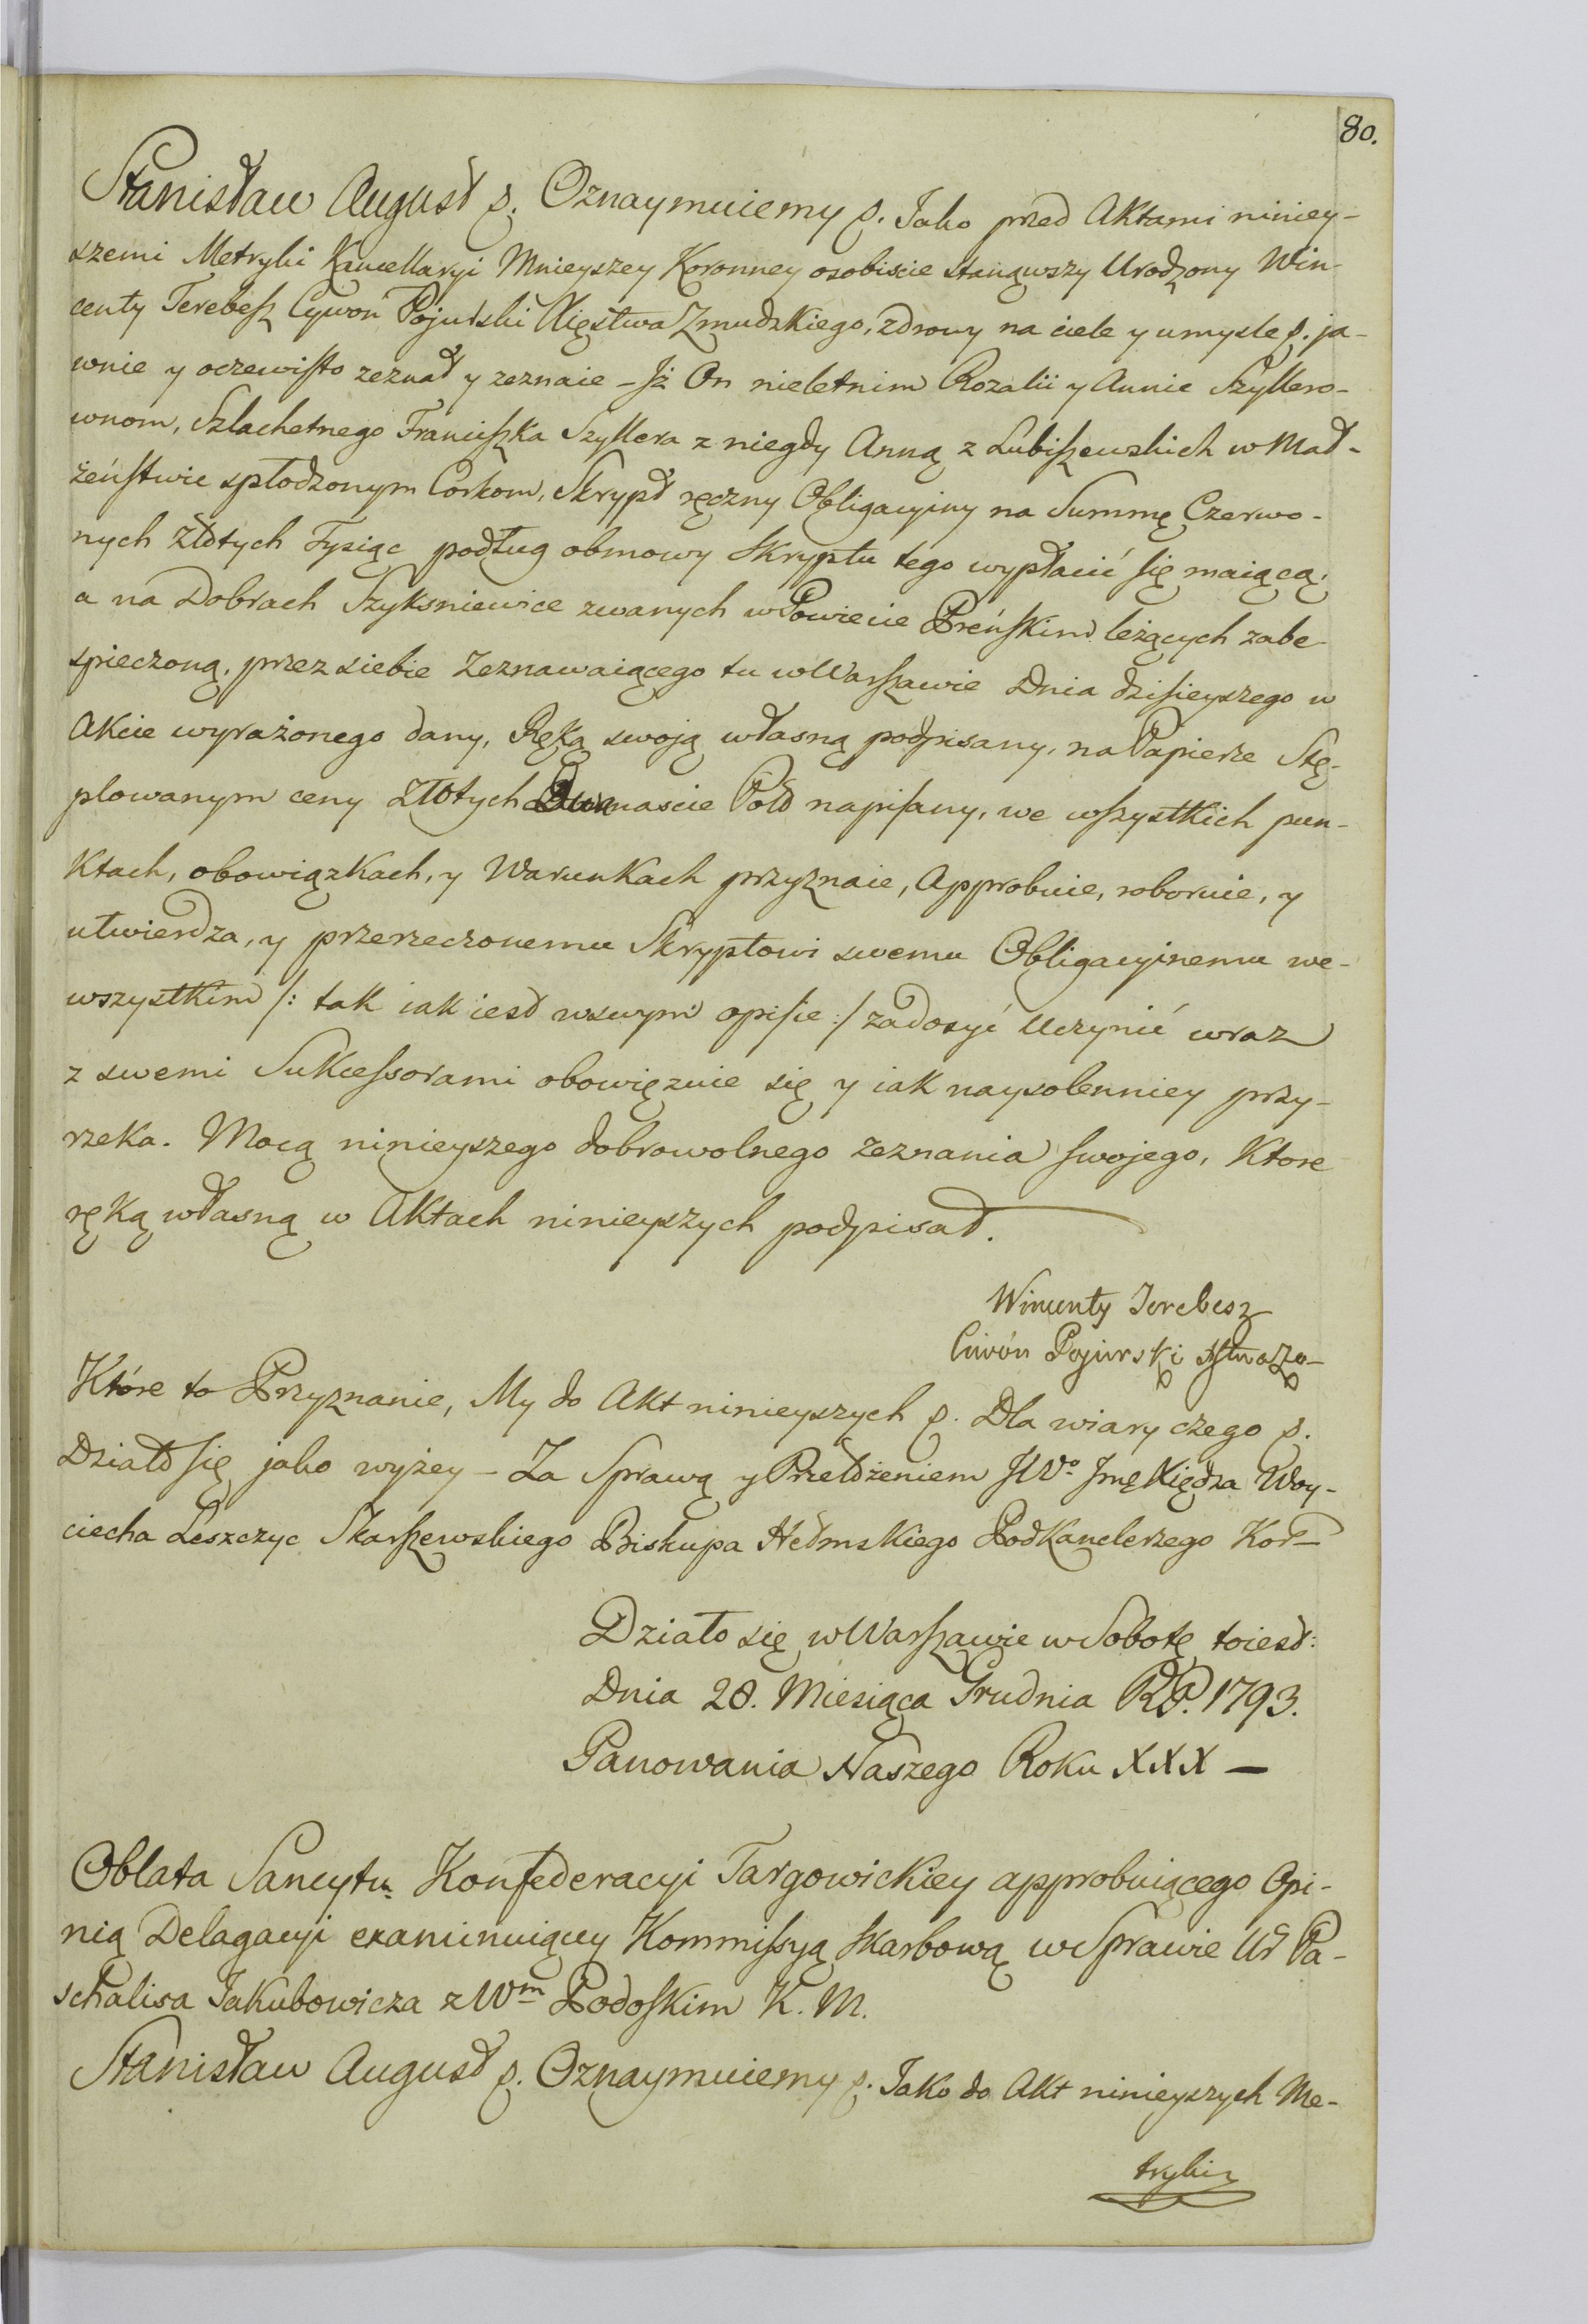 80.
Stanisław August p. Oznaymuiemy p. Jako przed Aktami niniey-
szemi Metryki Kancellaryi Mnieyszey Koronney osobiscie stanąwszy Urodzony Win-
centy Terebesz Cywoń Pojurski Xięstwa Zmudzkiego, zdrowy na ciele y umysle p. ja-
wnie y oczewisto zeznał y zeznaie – Jż On nieletnim Rozalii y Annie Szyllero-
wnom, Szlachetnego Franciszka Szyllera z niegdy Anną z Lubiszewskich w Mał-
żeństwie spłodzonym Corkom, Skrypt ręczny Obligacyiny na Summę Czerwo-
nych Złotych Tysiąc podług obmowy Skryptu tego wypłacić się maiącą,
a na Dobrach Szyksniewice zwanych w Powiecie Preńskim leżących zabe-
spieczoną, przez siebie Zeznawaiącego tu w Warszawie Dnia dzisieyszego w
Akcie wyrażonego dany, Ręką swoją własną podpisany, na Papierze Stę-
plowanym ceny Złotych Dwanascie Poł napisany, we wszystkich pun-
ktach, obowiązkach, y Warunkach przyznaie, Approbuie, roboruie, y
utwierdza, y przerzeczonemu Skryptowi swemu Obligacyinemu we-
wszystkim /: tak iak iest w swym opisie :/ zadosyć Uczynić wraz
z swemi Sukcessorami obowięzuie się y iak naysolenniey przy-
rzeka. Mocą ninieyszego dobrowolnego zeznania swojego, Ktore
ręką własną w Aktach ninieyszych podpisał.
Wincenty Terebesz
Ciwón Pojurski
Które to Przyznanie, My do Akt ninieyszych p. Dla wiary czego p.
Działo się jako wyżey – Za Sprawą y Przełożeniem JWo Jmę Xiędza Woy-
ciecha Leszczyc Skarszewskiego Biskupa Hełmskiego Podkanclerzego Kor–
Działo się w Warszawie w Sobotę toiest:
Dnia 28. Miesiąca Grudnia RP. 1793.
Panowania Naszego Roku XXX –
Oblata Sancytu Konfederacyi Targowickiey approbuiącego Opi-
nią Delagacyi examinuiącey Kommissyą Skarbową w Sprawie Ur Pa-
schalisa Jakubowicza z Wm Podoskim K. M.
Stanisław August p. Oznaymuiemy p. Jako do Akt ninieyszych Me-
tryki